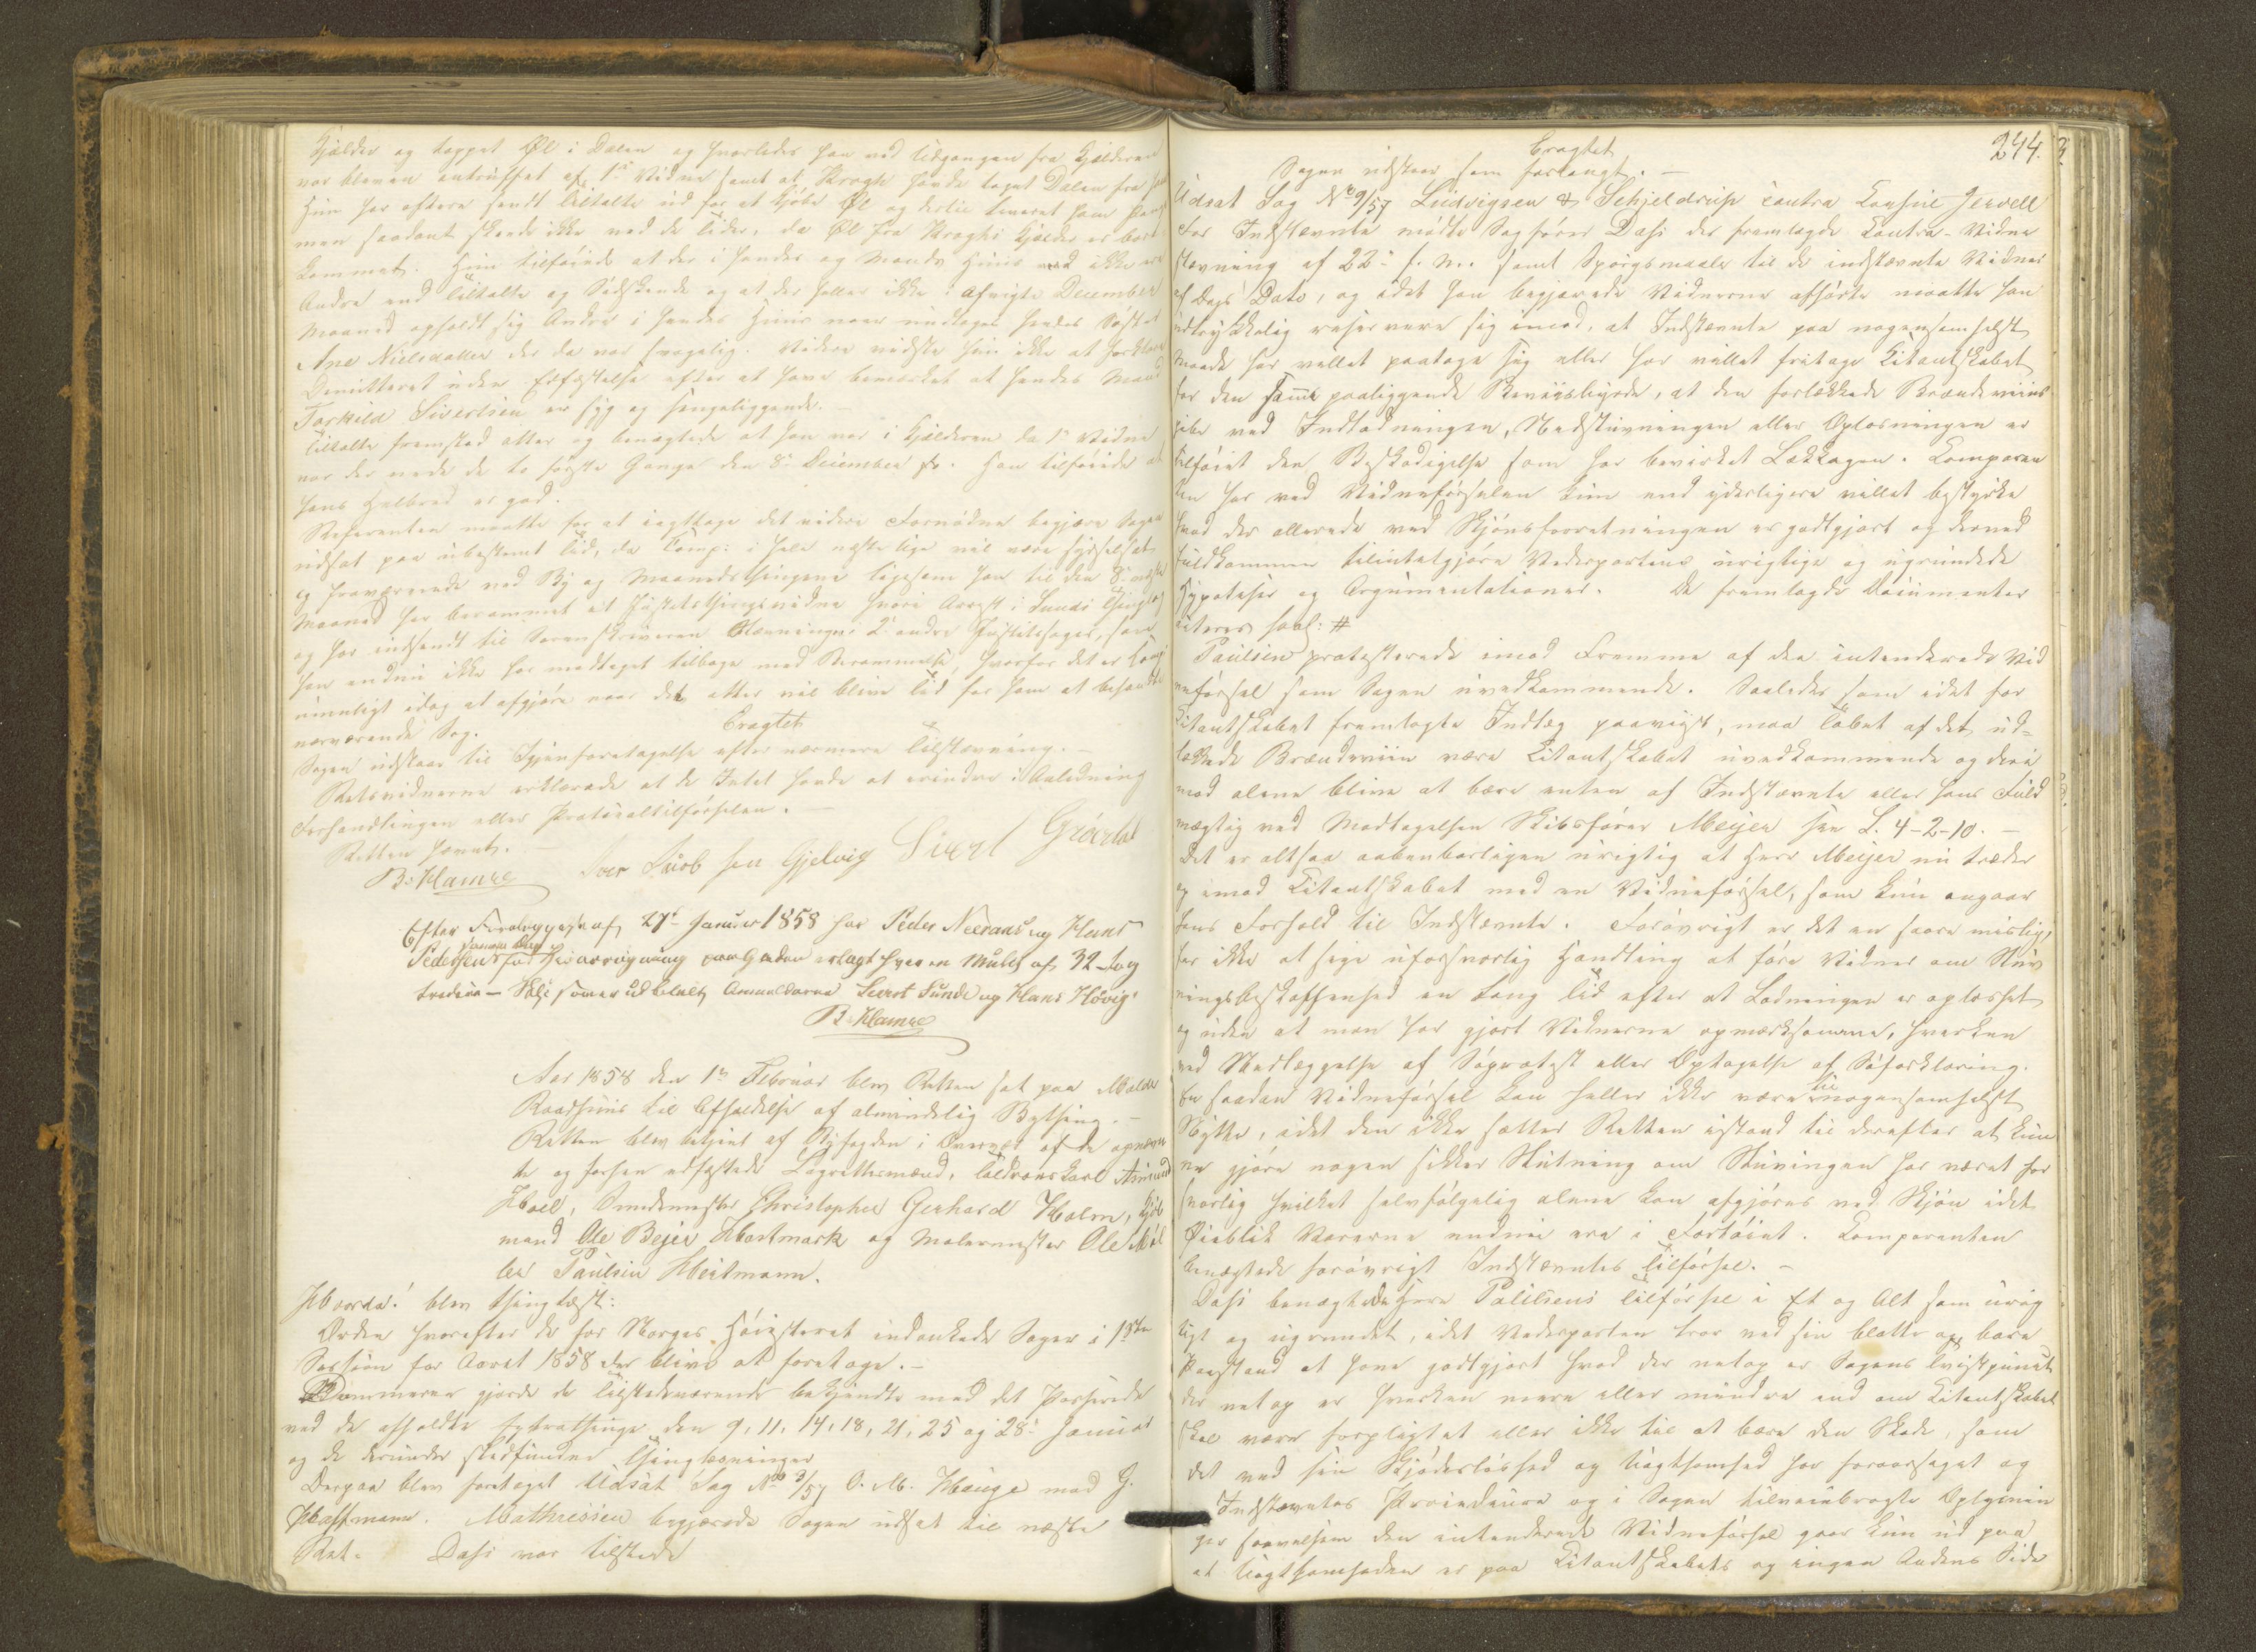 Kjelder og tappet Øl i Dalen og hvorledes han ved Udgangen fra Kjelderen
var bleven antruffet af 1ste Vidne samt at Krogh havde taget Dalen fra ham
Hun har oftere sendt Tiltalte ud for at kjøbe Øl og dertil leveret ham Penge
men saadant skeede ikke ved de Tider, da Øl fra Kroghs Kjelder er bort-
kommet. Hun tilføiede at der i hendes og Mands Huus ikke er
Andre end Tiltalte og Sødskende og at der heller ikke i afvigte December
Maaned opholdt sig Andre i hendes Huus naar undtages hendes Søster
Ane Nielsdatter der da var svagelig. Videre vidste hun ikke at forklare
Demitteret uden Edfæstelse efter at have bemærket at hendes Mand
Torkild Sivertsen er syg og sengeliggende. -
Tiltalte fremstod atter og benægtede at han var i Kjelderen da 1ste Vidne
var der nede de to første Gange den 8de December sidstl. Han tilføiede at
hans Helbred er god.
Referenten maatte for at iagttage det videre Fornødne begjære Sagen
udsat paa ubestemt Tid, da Comp: i hele næste Uge vil være sysselsat
og fraværende ved By og Maanedsthingene ligesom han til den 8de næste
Maaned har berammet et Justitsthingsvidne hvori Arrest i Sunds Thinglag
og har indsendt til Sorenskriveren Stævninger i 2de andre Justitssager, som
han endnu ikke har modtaget tilbage med Berammelse, hvorfor det er
umuligt idag at afgjøre naar det atter vil blive Tid for ham at behandle
nærværende Sag. Eragtet
Sagen udstaar til Igjenforetagelse efter nærmere Tilstævning. -
Retsvidnerne erklærede at de Intet havde at erindre i Anledning
Forhandlingen eller Protocoltilførselen. -
Retten hævet. -
B. Hamre Iver Jacobsen Gjelvig Sivert Grøvdal
Efter Forelæggelse af 27de Januar 1858 har Peder Neeraas og Hans
Pedersen samme Dag for Huusarrigering paa Gaden erlagt hver en Mulct af 32 -
tredive - Skl: som er udbetalt Anmelderne Sivert Sunde og Hans Høvig.
B. Hamre
Aar 1858 den 1ste Februar blev Retten sat paa Molde
Raadhuus til Afholdelse af almindelig Bything. -
Retten blev betjent af Byfogden i Overvær af de opnævn-
te og forhen edfæstede Laugrettesmænd, Toldroerskarl Asmund
Hoel, Smedemester Christopher Gerhard Holm, Kjøb-
mand Ole Beyer Hartmark og Malermester Ole Møl-
ler Paulsen Heitmann.
Hvorda! blev thinglæst:
Orden hvorefter de for Norges Høiesteret indankede Sager i 1ste
Session for Aaret 1858 der blive at foretage. -
Dommeren gjorde de Tilstedeværende bekjendte med det Passerede
ved de afholdte Extrathinge den 9, 11, 14, 18, 21, 25 og 28de Januar
og de derunder stedfundne Thinglæsninger
Derpaa blev foretaget Udsat Sag No 3/57 O. M. Hauge mod G.
Hoffmann. Mathiesen begjærede Sagen udsat til næste
Ret. - Dahl var tilstede
244.
Eragtet
Sagen udstaar som forlangt. -
Udsat Sag No 9/57 Ludvigsen & Schjelderup contra Consul Jervell
For Indstævnte mødte Sagfører Dahl der fremlagde Contra-Vidne
stævning af 22de f. M. samt Spørgsmaale til de indstævnte Vidner
af Dags Dato, og idet han begjærede Vidnerne afhørte maatte han
udtrykkelig reservere sig imod, at Indstævnte paa nogensomhelst
Maade har villet paatage sig eller har villet fritage Citantskabet
for den samme paaliggende Beviisbyrde, at den forlækkede Brændeviins-
pibe ved Indladningen, Nedstuvningen eller Oplosningen er
tilføiet den Beskadigelse som har bevirket Lækkagen. Comparen
ten har ved Vidneførselen kun end yderligere villet bestyrke
hvad der allerede ved Skjønsforretningen er godtgjort og derved
fuldkommen tilintetgjøre Vederpartens urigtige og ugrundede
Hypoteser og Argumentationer. De fremlagde Documenter
citeres saal: #
Paulsen protesterede imod Fremme af den intenderede Vid
neførsel som Sagen uvedkommende. Saaledes som idet for
Citantskabet fremlagte Indlæg paaviist, maa Tabet af det ud-
lækkede Brændeviin være Citantskabet uvedkommende og deri
mod alene blive at bære enten af Indstævnte eller hans Fuld
mægtig ved Modtagelsen Skibsfører Meyer sen L. 4-2-10. -
Det er altsaa aabenbarligen urigtig at Herr Meyer nu træder
op imod Citantskabet med en Vidneførsel, som kun angaar
hans Forhold til Indstævnte. Forøvrigt er det en saare mislig,
for ikke at sige uforsvarlig Handling at føre Vidner om Stuv
ningsbeskaffenhed en lang Tid efter at Ladningen er oplosset
og uden at man har gjort Vidnerne opmærksomme, hverken
ved Nedlæggelse af Søprotest eller Optagelse af Søforklaring.
En saadan Vidneførsel kan heller ikke være til nogensomhelst
Nytte, idet den ikke sætter Retten istand til derefter at kun
ne gjøre nogen sikker Slutning om Stuvningen har været for
svarlig hvilket selvfølgelig alene kan afgjøres ved Skjøn idet
Øieblik Varerne endnu ere i Fartøiet. Comparenten
benægtede forøvrigt Indstævntes Tilførsel. -
Dahl benægtede Herr Paulsens Tilførsel i Et og Alt som urig
tigt og ugrundet, idet Vederparten tror ved sin blotte og bare
Paastand at have godtgjort hvad der netop er Sagens Tvistpunct
der netop er hverken mere eller mindre end om Citantskabet
skal være forpligtet eller ikke til at bære den Skade, som
det ved sin Skjødesløshed og Uagtsomhed har foraarsaget og
Indstævntes Procedeure og i Sagen tilveiebragte Oplysnin
ger saavelsom den intenderede Vidneførsel gaar kun ud paa
at Uagtsomheden er paa Citantskabets og ingen Andens Side